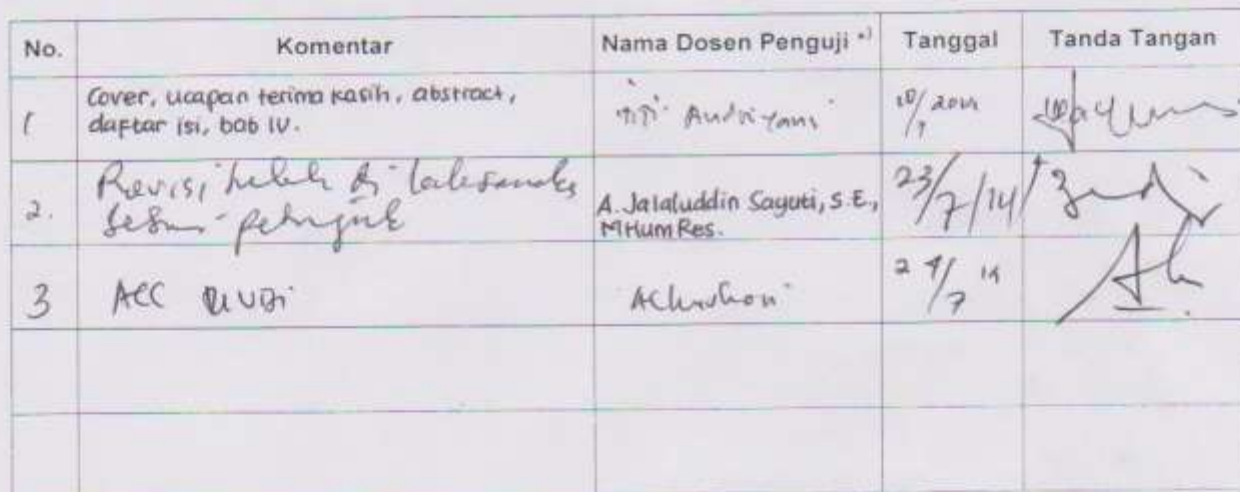 No. Komentar Nama Dosen Penguji *) Tanggal Tanda Tangan
1 Cover, ucapan terima kasih, abstract,
daftar isi, bab IV.
Andriyani
2. Revisi telah di laksanakan
sesuai petunjuk
A. Jalaluddin Sayuti, S.E.,
MHumRes.
23/7/14
3 ACC
24/7 14